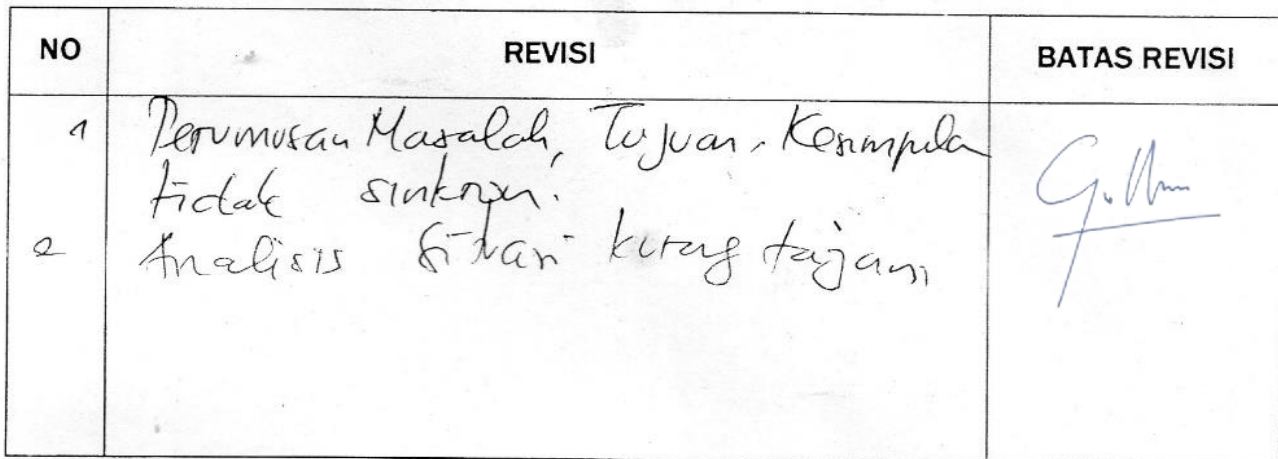 NO REVISI BATAS REVISI
1 Perumusan Masalah, Tujuan, Kesimpulan
tidak sinkron.
2 Analisis kurang tajam